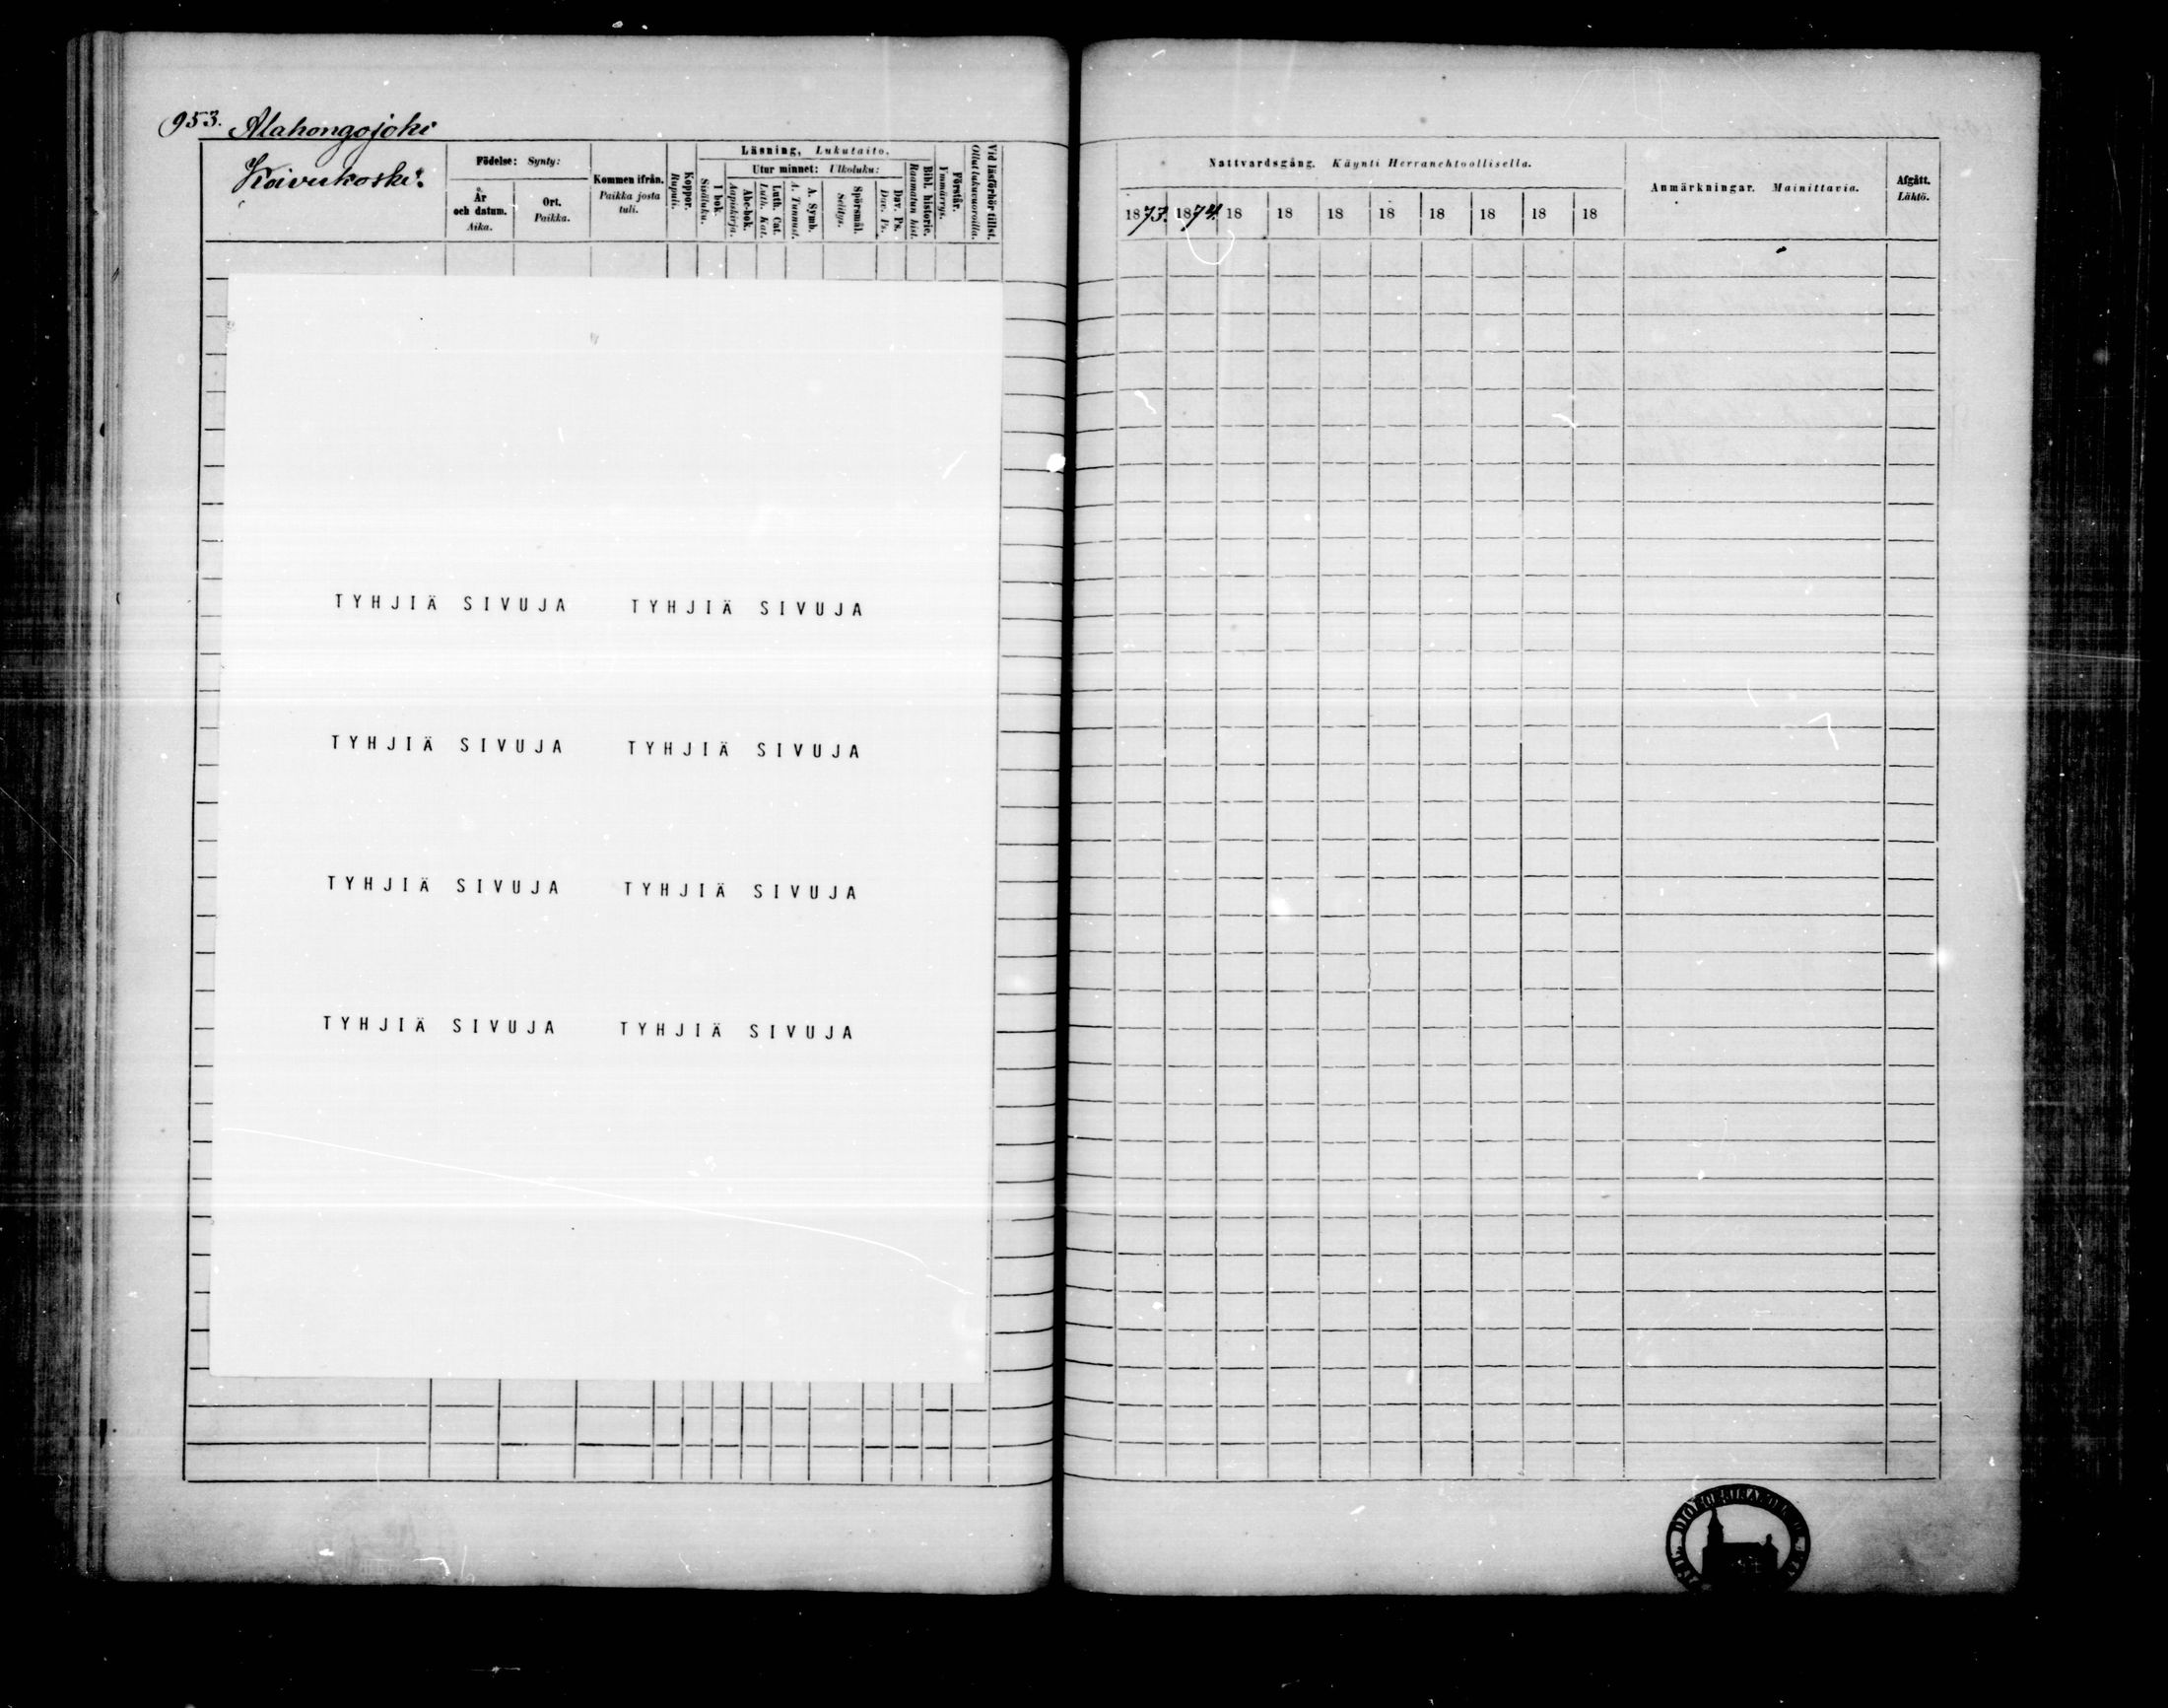 953. Alahongojoki
Koivukoski.
Födelse: Synty:
År och datum. Aika.
Ort. Paikka.
Kommen ifrån. Paikka josta tuli.
Koppor. Rupuli.
Läsning, Lukutaito.
I bok. Sisäluku.
Utur minnet: Ulkoluku:
Abc-bok. Aapiskirja.
Luth. Cat. Luth. Kat.
A. Symb. A. Tunnust.
Spörsmål. Selitys.
Dav. Ps. Dav. Ps.
Bibl. historie. Raamatun hist.
Förstår. Ymmärrys.
Vid läsförhör tillst. Ollut lukuvuoroilla.
Nattvardsgång. Käynti Herranehtoollisella.
1873. 1874. 18 18 18 18 18 18 18 18
Anmärkningar. Mainittavia.
Afgått. Lähtö.
TYHJIÄ SIVUJA TYHJIÄ SIVUJA
TYHJIÄ SIVUJA TYHJIÄ SIVUJA
TYHJIÄ SIVUJA TYHJIÄ SIVUJA
TYHJIÄ SIVUJA TYHJIÄ SIVUJA